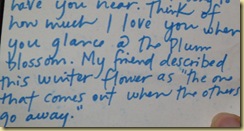 have you near. Think of
how much I love you when
you glance @ the Plum
blossom. My friend described
this winter flower as "the one
that comes out when the others
go away."